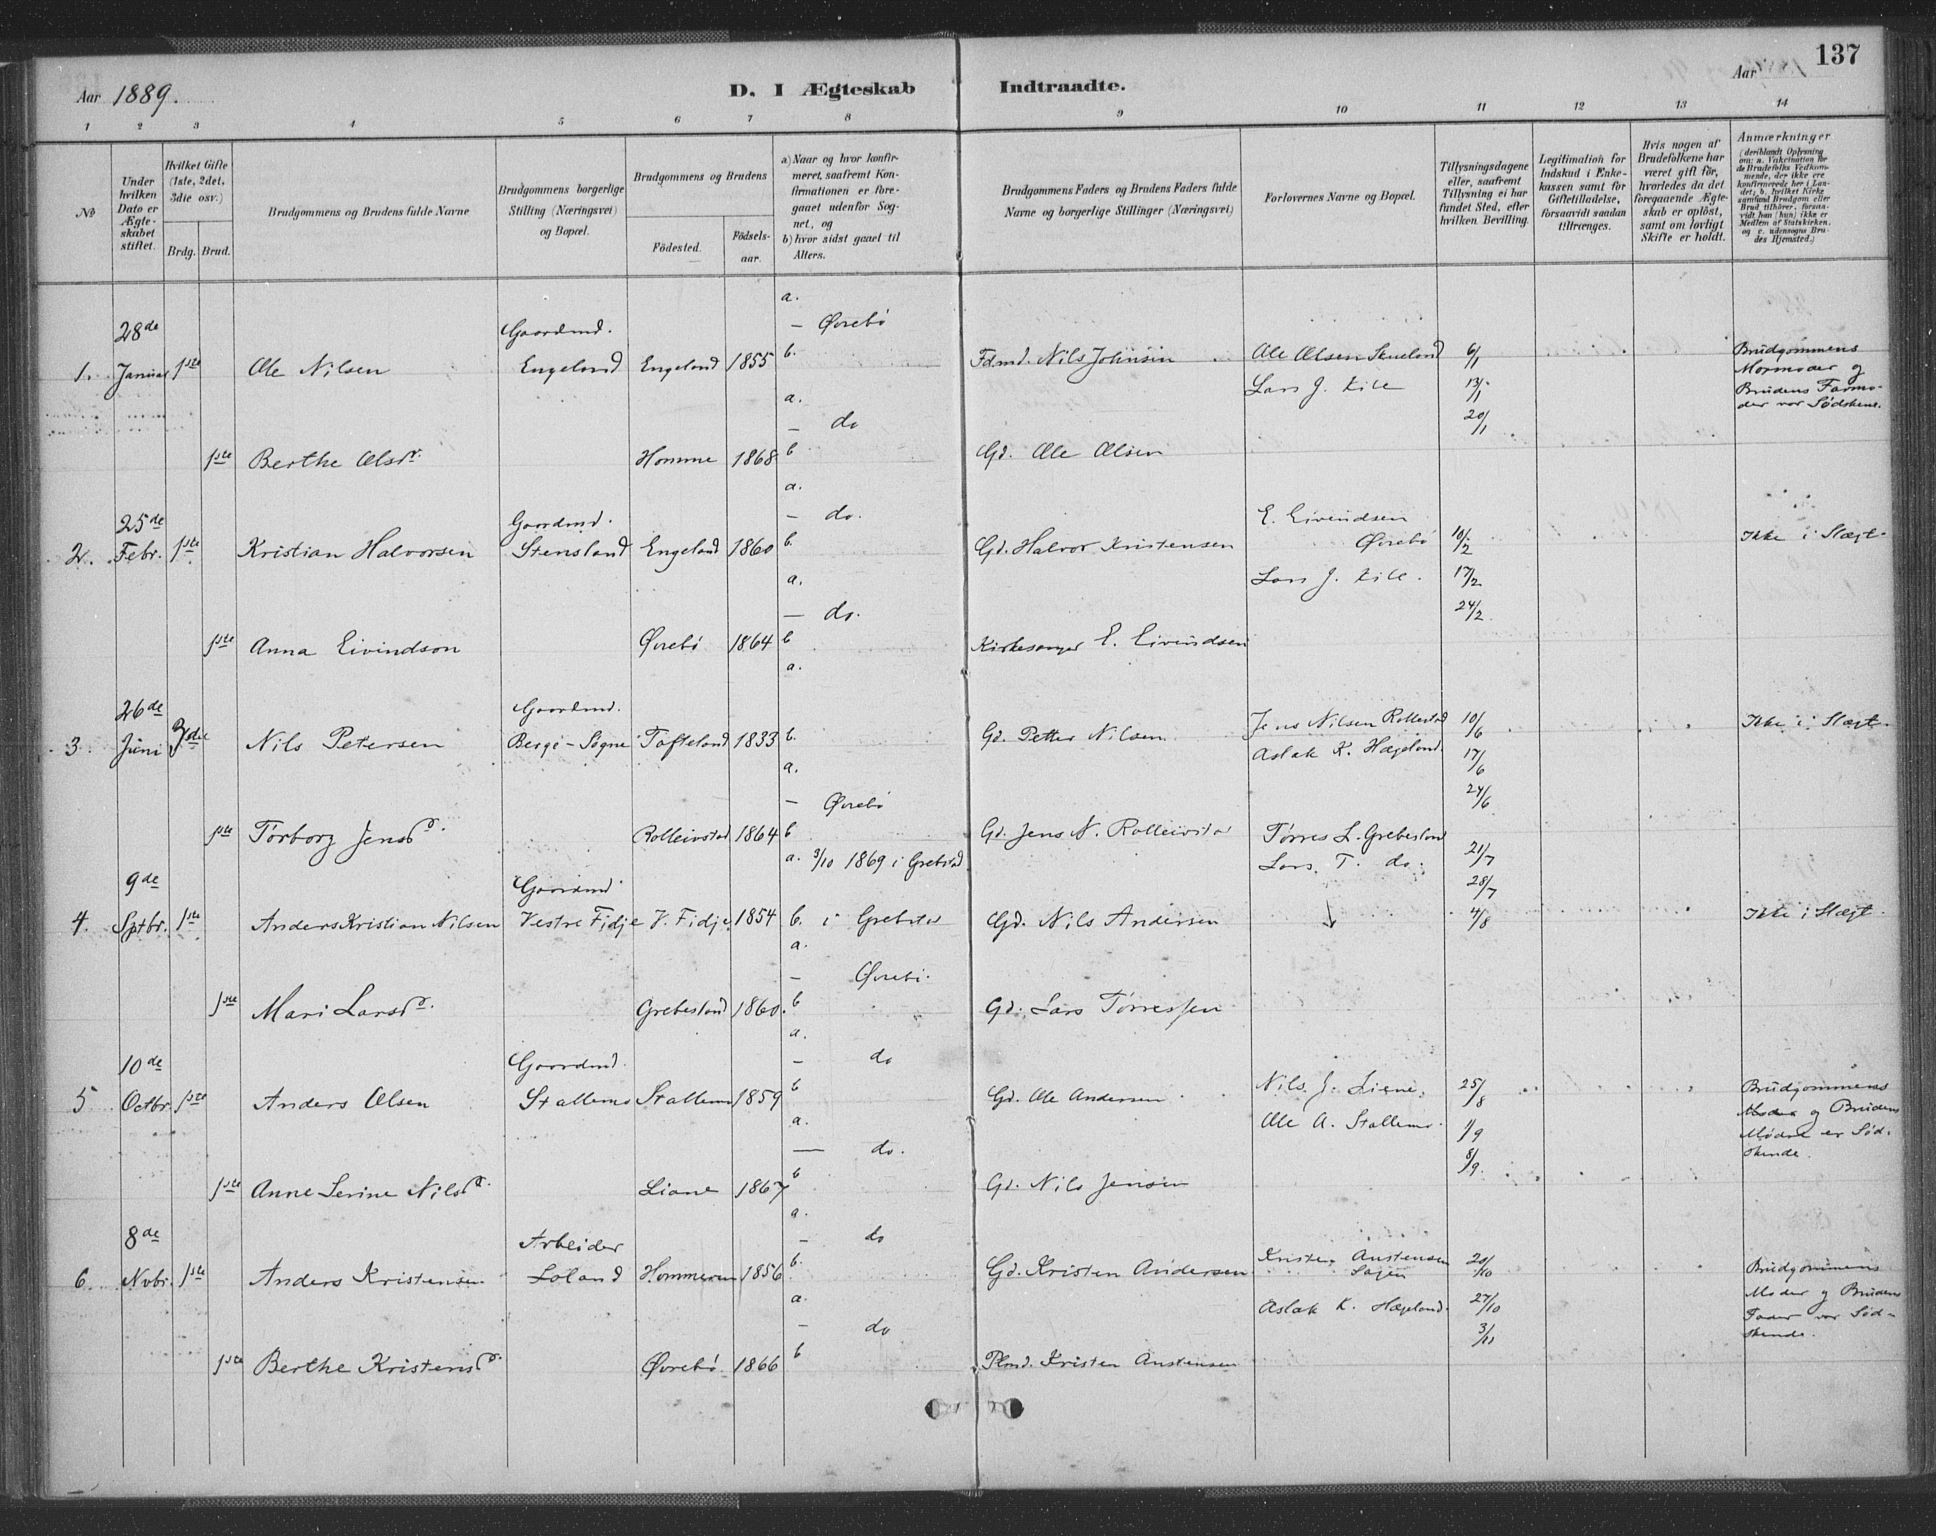 Aar 1889.
D. I Ægteskab
Indtraadte.
Aar
137
1 2 3 4 5 6 7 8 9 10 11 12 13 14
No
Under hvilken Dato er Ægteskabet stiftet.
Hvilket Gifte (1ste, 2det, 3die osv.)
Brdg. Brud.
Brudgommens og Brudens fulde Navne
Brudgommens borgerlige Stilling (Næringsvei) og Bopæl.
Brudgommens og Brudens
Fødested.
Fødselsaar.
a) Naar og hvor konfirmeret, saafremt Konfirmationen er foregaaet udenfor Sognet, og
b) hvor sidst gaaet til Alters.
Brudgommens Faders og Brudens Faders fulde Navne og borgerlige Stillinger (Næringsvei)
Forlovernes Navne og Bopæl.
Tillysningsdagene eller, saafremt Tillysning ei har fundet Sted, efter hvilken Bevilling.
Legitimation for Indskud i Enkekassen samt for Giftetilladelse, forsaavidt saadan tiltrænges.
Hvis nogen af Brudefolkene har været gift før, hvorledes da det foregaaende Ægteskab er opløst, samt om lovligt Skifte er holdt.
Anmærkninger (deriblandt Oplysning om: a. Vakcination for de Brudefolks Vedkommende, der ikke ere konfirmerede her i Landet; b. hvilket Kirkesamfund Brudgom eller Brud tilhører, forsaavidt han (hun) ikke er Medlem af Statskirken, og c. udensogns Brudes Hjemsted.)
1. 28de Januar 1ste Ole Nilsen Gaardmd. Engeland Engeland 1855 a. — Øvrebø b. Fdmd. Nils Johnsen Ole Olsen Lars J. Kile 6/1 13/1 20/1 Brudgommens Mormoder og Brudens Farmoder var Sødskend.
1ste Berthe Olsdr. Homme 1868 a. — do b Gd. Ole Olsen
2. 25de Febr. 1ste Kristian Halvorsen Gaardmd. Stensland Engeland 1860 a. — do. b. Gd. Halvor Kristensen E. Eivendsen Øvrebø Lars J. Kile. 10/2 17/2 24/2 Ikke i Slægt.
1ste Anna Eivindson Øvrebø 1864 a. — do. b Kirkesanger E. Eivindsen
3. 26de Juni Nils Petersen Gaardmd. Sogne Tofteland 1833 a. b. Gd. Petter Nilsen Jens Nilsen Rollestad Aslak K. Hægeland. 10/6 17/6 24/6 Ikke i Slægt.
1ste Torborg Jensdr. Rolleivstad 1864 a. — Øvrebø b Gd. Jens N. Rolleivstad
4. 9de Sptbr. 1ste Anders Kristian Nilsen Gaardmd Vestre Fidje V. Fidje 1854 a. 3/10 1869 i Grebstad b. i Grebstad Gd. Nils Andersen Tørres L. Grebesland Lars T. do. 21/7 28/7 4/8 Ikke i Slægt.
1ste Mari Larsdr. Grebesland 1860. a. — Øvrebø. b Gd. Lars Tørressen
5 10de Octbr. 1ste Anders Olsen Gaardmd. Stallemo Stallemo 1859 a. — do b Gd. Ole Andersen Nils J. Liene, Ole A. Stallemo. 25/8 1/9 8/9. Brudgommens Moder og Brudens Moder er Sødskende.
1ste Anne Serine Nilsdr. Liane 1867 a. — do. b Gd. Nils Jensen
6. 8de Nvbr. 1ste Anders Kristensen Arbeider Loland Hommeren 1856 a. — do b. Gd. Kristen Andersen Kristen Austensen Aslak K. Hægeland. 20/10 27/10 3/11 Brudgommens Moder og Brudens Fader var Sødskende.
1ste Berthe Kristensdr. Øvrebø 1866 a. — do b Plmd. Kristen Austensen